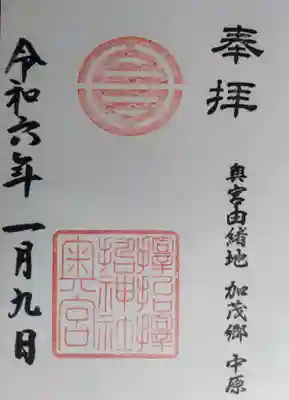 奉拝
奥宮由緒地 加茂郷 中原
神社
奥宮
令和六年一月九日